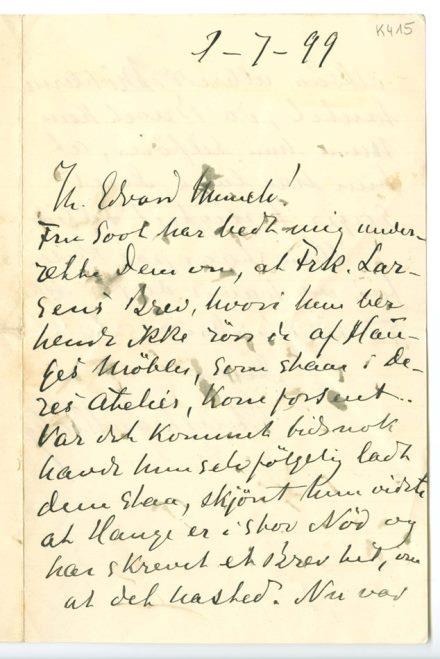 K415
1-7-99
Hr. Edvard Munch!
Fru Soot har bedt mig under-
rette Dem om, at Frk. Lar-
sens Brev, hvori hun ber
hende ikke röre de af Hau-
ges Möbler, som staar i De-
res Atelier, kom for sent.
Var det kommet tidsnok
havde hun selvfölgelig ladt
dem staa, skjönt hun vidste
at Hauge er i stor Nöd og
har skrevet et Brev hid, om
at det hasted. Nu var